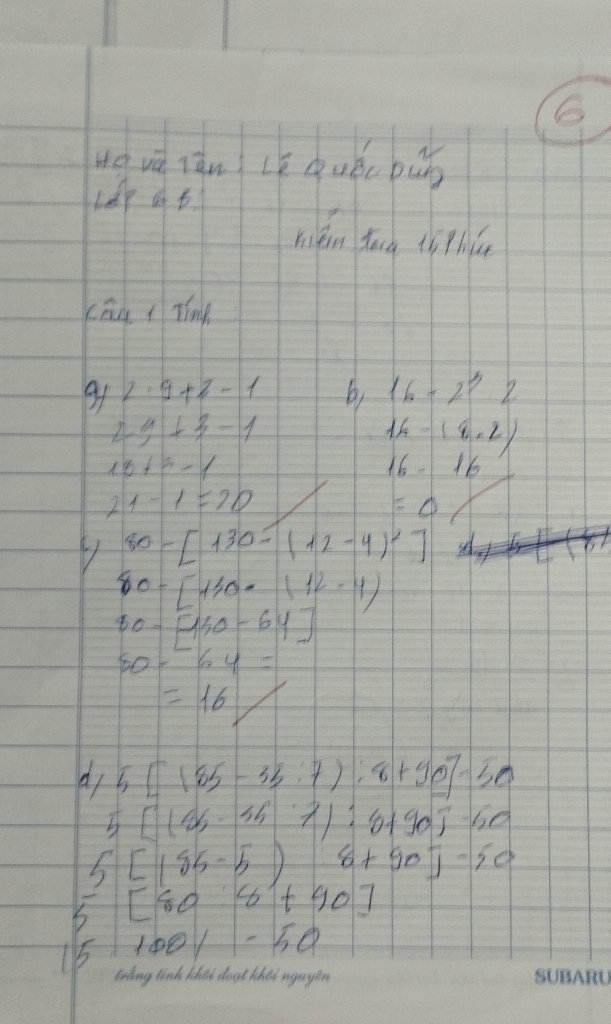 6
Họ và Tên: Lê Quốc Dũng
Lớp 6B:
Kiểm tra 15 Phút
Câu 1 Tính
a) 2 · 9 + 3 - 1
2 · 9 + 3 - 1
18 + 3 - 1
21 - 1 = 20
b, 16 - 2³ 2
16 - (8 . 2)
16 - 16
= 0
c) 80 - [ 130 - ( 12 - 4 )² ]
80 - [ 130 - ( 12 - 4 )
80 - [ 130 - 64 ]
80 - 64 =
= 16
d, 5 [ ( 85 - 35 : 7 ) : 8 + 90 ] - 50
5 [ ( 85 - 35 : 7 ) : 8 + 90 ] - 50
5 [ ( 85 - 5 ) 8 + 90 ] - 50
5 [ 80 8 + 90 ]
5 100 - 50
trắng tinh khôi đoạt khôi nguyên SUBARU